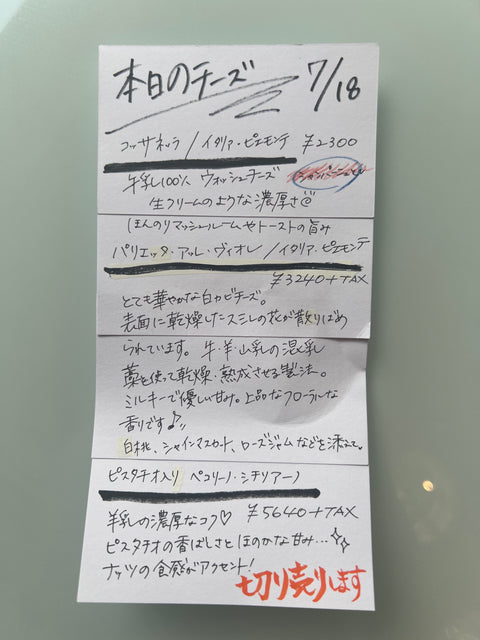 本日のチーズ 7/18
コッサネッラ / イタリア・ピエモンテ ¥2300
牛乳100% ウォッシュチーズ
生クリームのような濃厚さ
ほんのりマッシュルームやトーストの旨み
パリエッタ・アッレ・ヴィオレ / イタリア・ピエモンテ
¥3240+TAX
とても華やかな白カビチーズ。
表面に乾燥したスミレの花が散りばめ
られています。牛・羊・山羊乳の混乳
藁を使って乾燥・熟成させる製法。
ミルキーで優しい甘み。上品なフローラルな
香りです♪〃
白桃、シャインマスカット、ローズジャムなどを添えて。
ピスタチオ入り ペコリーノ・シチリアーノ
羊乳の濃厚なコク♡ ¥5640+TAX
ピスタチオの香ばしさとほのかな甘み…
ナッツの食感がアクセント!
切り売りします